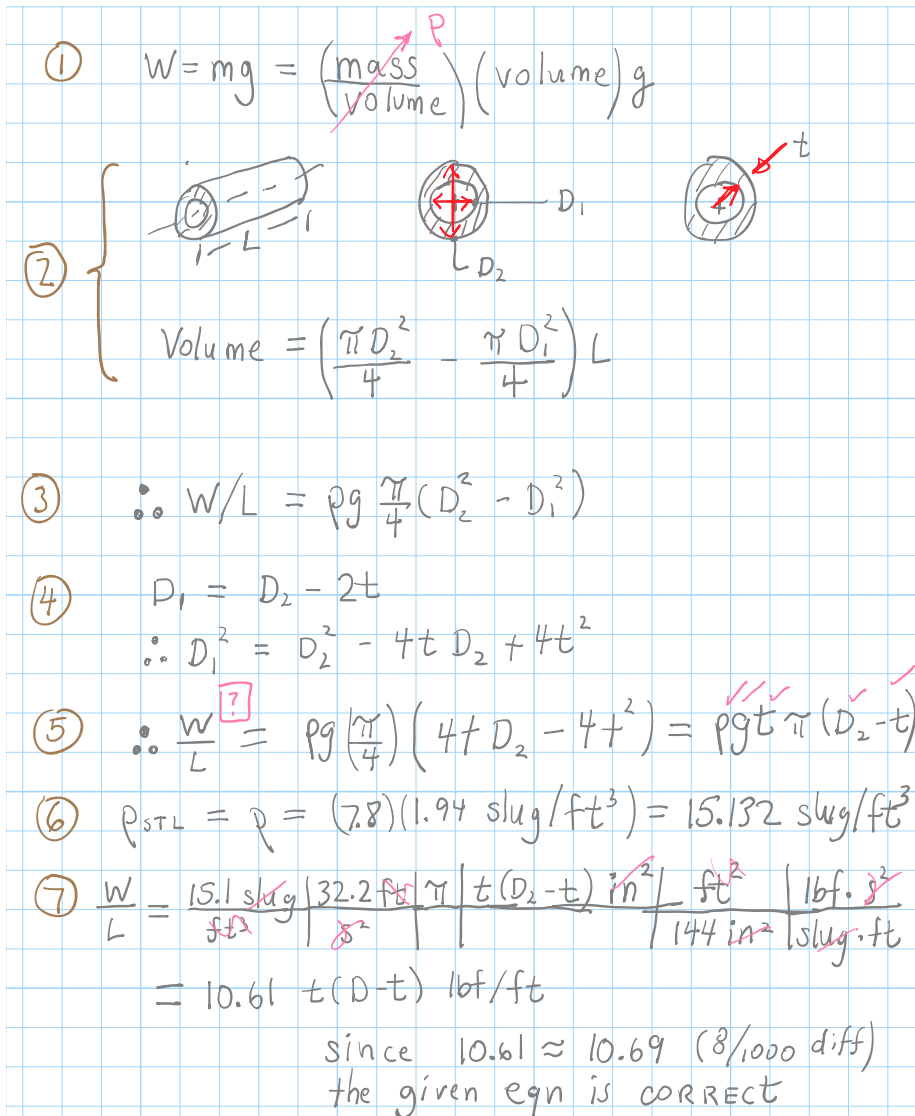 ① W = mg = (mass/volume)(volume)g ρ
②
L
D₁
D₂
t
Volume = (πD₂²/4 − πD₁²/4) L
③ ∴ W/L = ρg π/4 (D₂² − D₁²)
④ D₁ = D₂ − 2t
∴ D₁² = D₂² − 4t D₂ + 4t²
⑤ ∴ W/L = ρg(π/4)(4tD₂ − 4t²) = ρgtπ(D₂−t)
?
⑥ ρSTL = ρ = (7.8)(1.94 slug/ft³) = 15.132 slug/ft³
⑦ W/L = 15.1 slug/ft³ | 32.2 ft/s² | π | t(D₂−t) in² | ft²/144 in² | lbf·s²/slug·ft
= 10.61 t(D−t) lbf/ft
since 10.61 ≈ 10.69 (8/1000 diff)
the given eqn is CORRECT